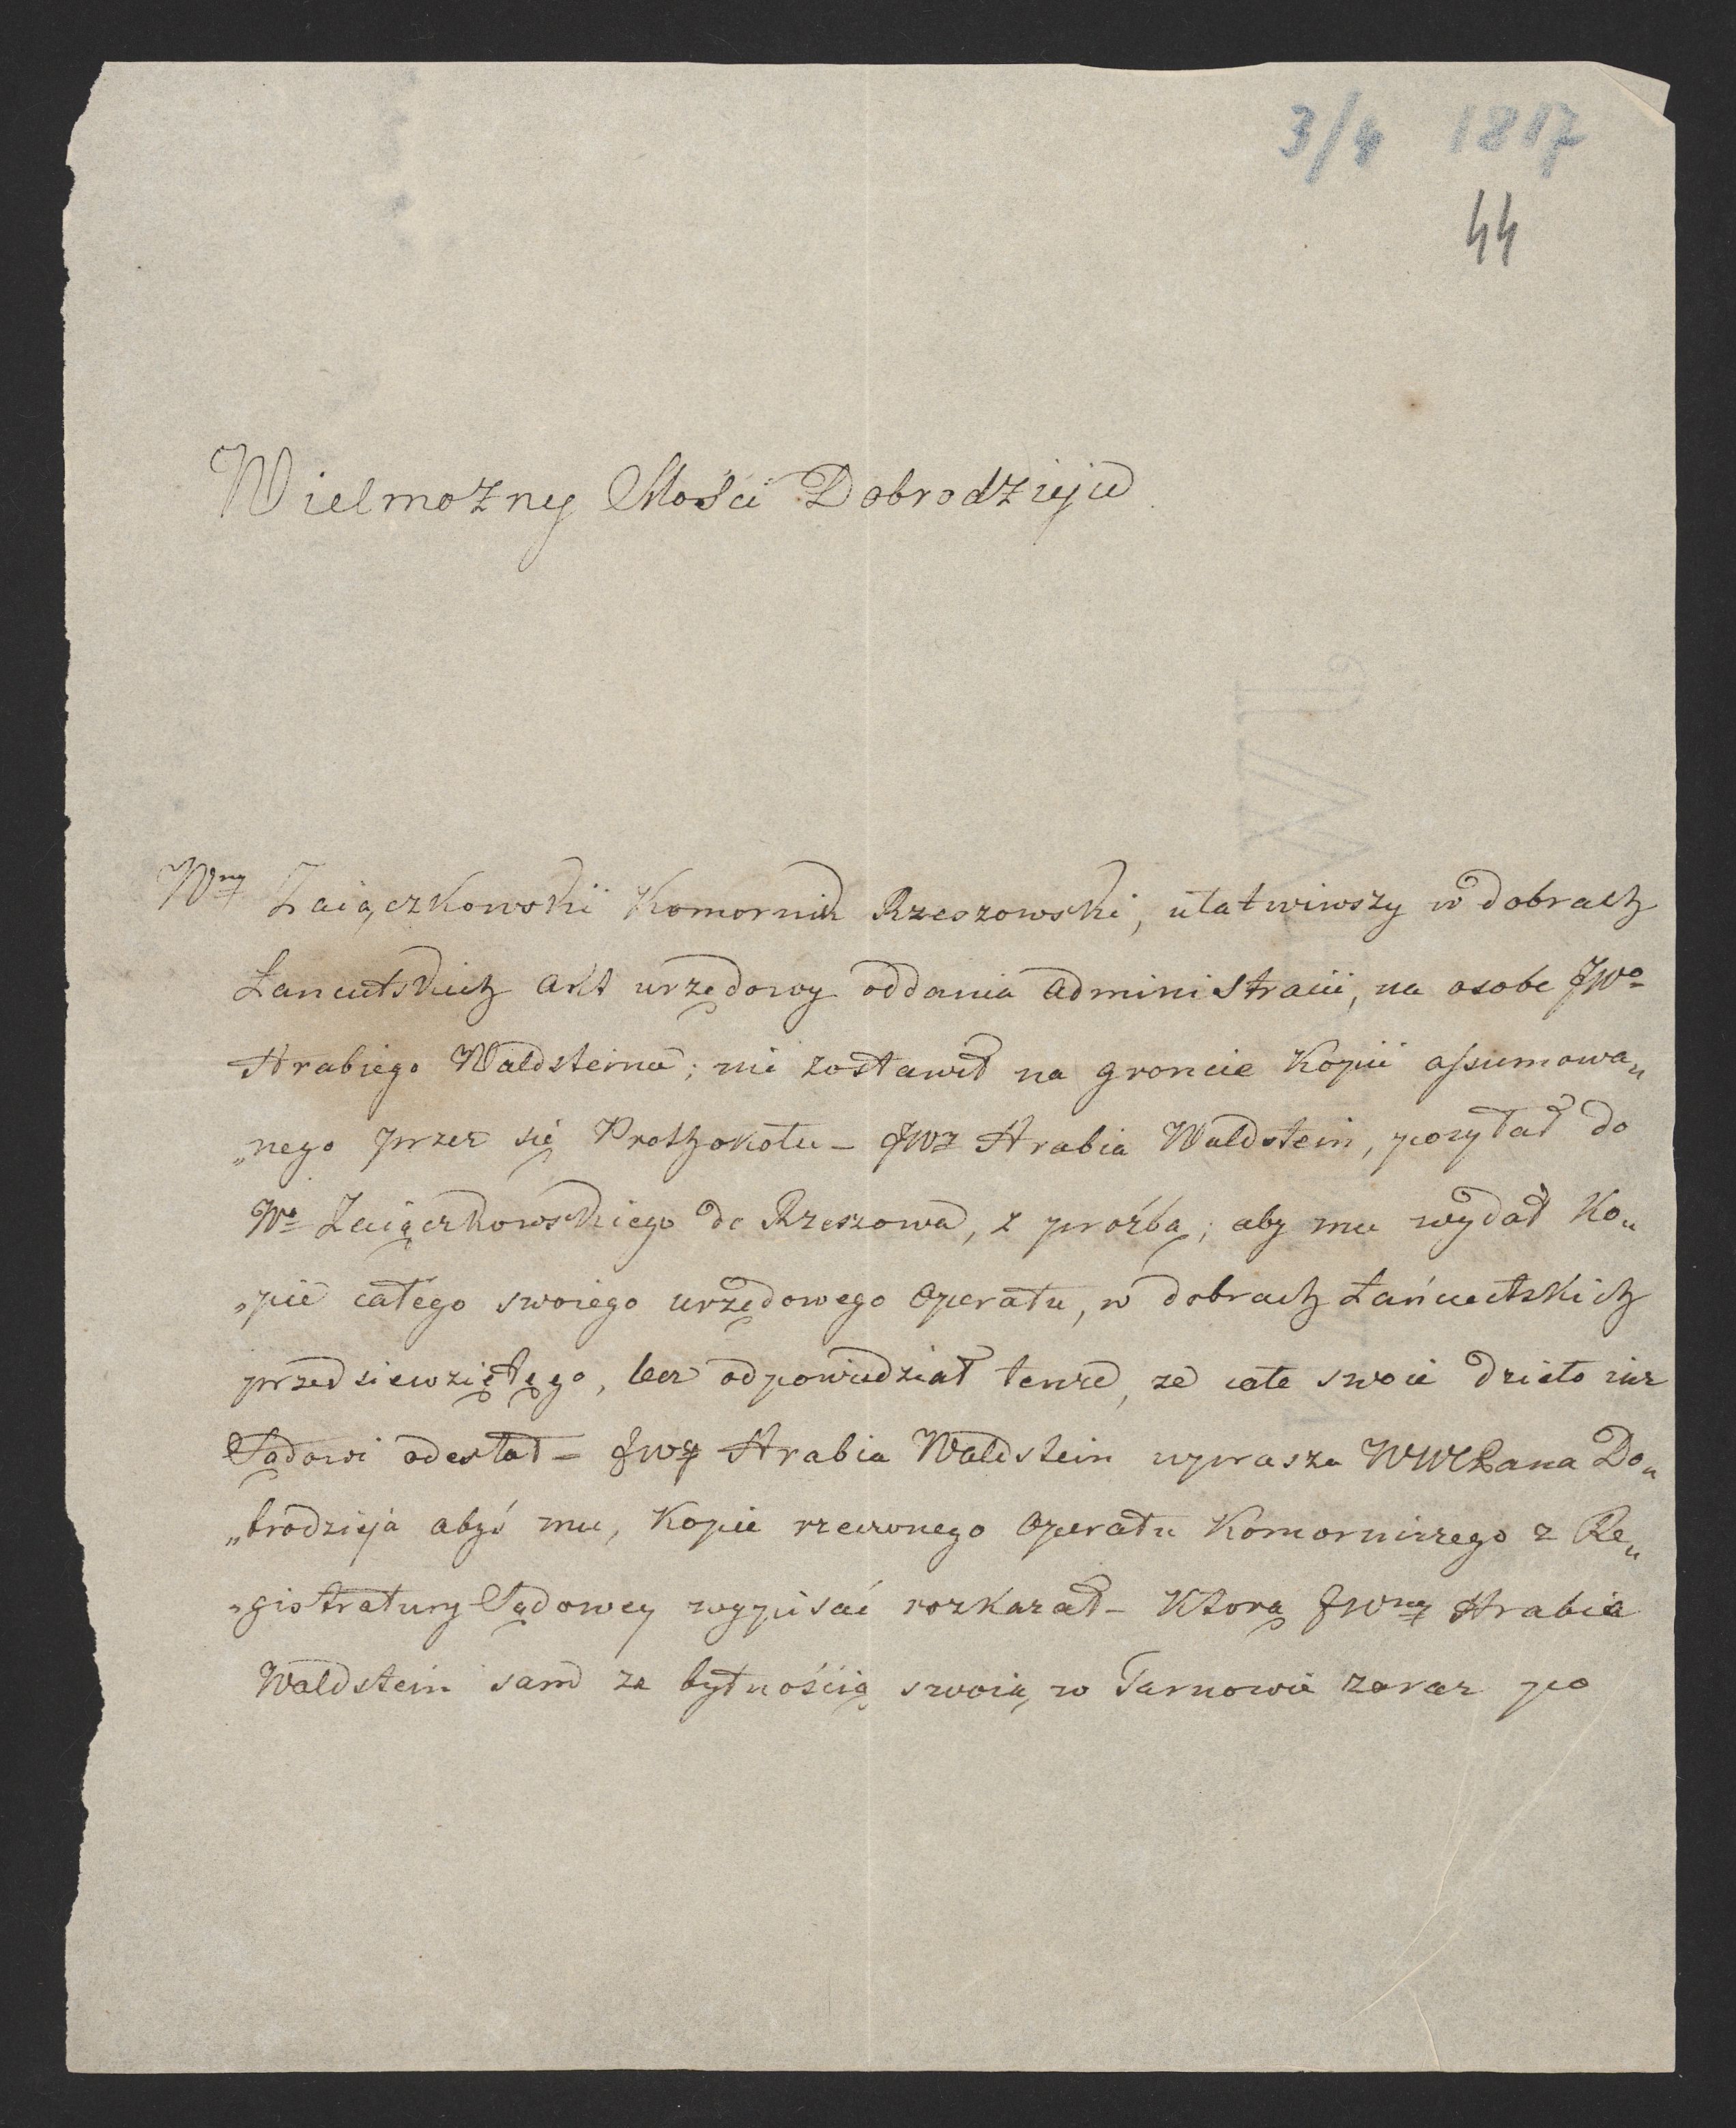 3/4 1817
44
Wielmożny Mości Dobrodzieju
Wny Zaiączkowski Komornik Rzeszowski, ułatwiwszy w dobrach
Łancutskich akt urzędowy oddania administracii, na osobe JWo
Hrabiego Waldsteina; nie zostawił na groncie Kopii assumowa„
„nego przez się Prothokołu – JWy Hrabia Waldstein, posyłał do
Wo Zaiączkowskiego do Rzeszowa, z prożbą; aby mu wydał Ko„
„pie całego swoiego urzędowego Operatu, w dobrach Łańcutskich
przedsiewziętego, lecz odpowiedział tenże, ze całe swoie dzieło iuz
Sądowi odesłał – JWy Hrabia Waldstein uprasza WWPana Do„
„brodzieja abyś mu, Kopie rzeczonego Operatu Komorniczego z Re„
„gistratury Sądowey wypisać rozkazał – Ktorą JWny Hrabia
Waldstein sam za bytnośćią swoią w Tarnowie zaraz po